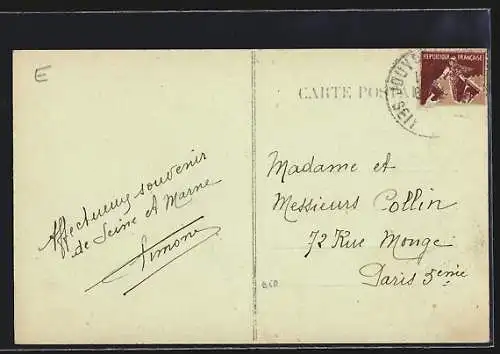 E
CARTE POSTALE
REPUBLIQUE FRANÇAISE
Affectueux souvenir
de Seine et Marne
Simone
Madame et
Messieurs Collin
72 Rue Monge
Paris 5eme